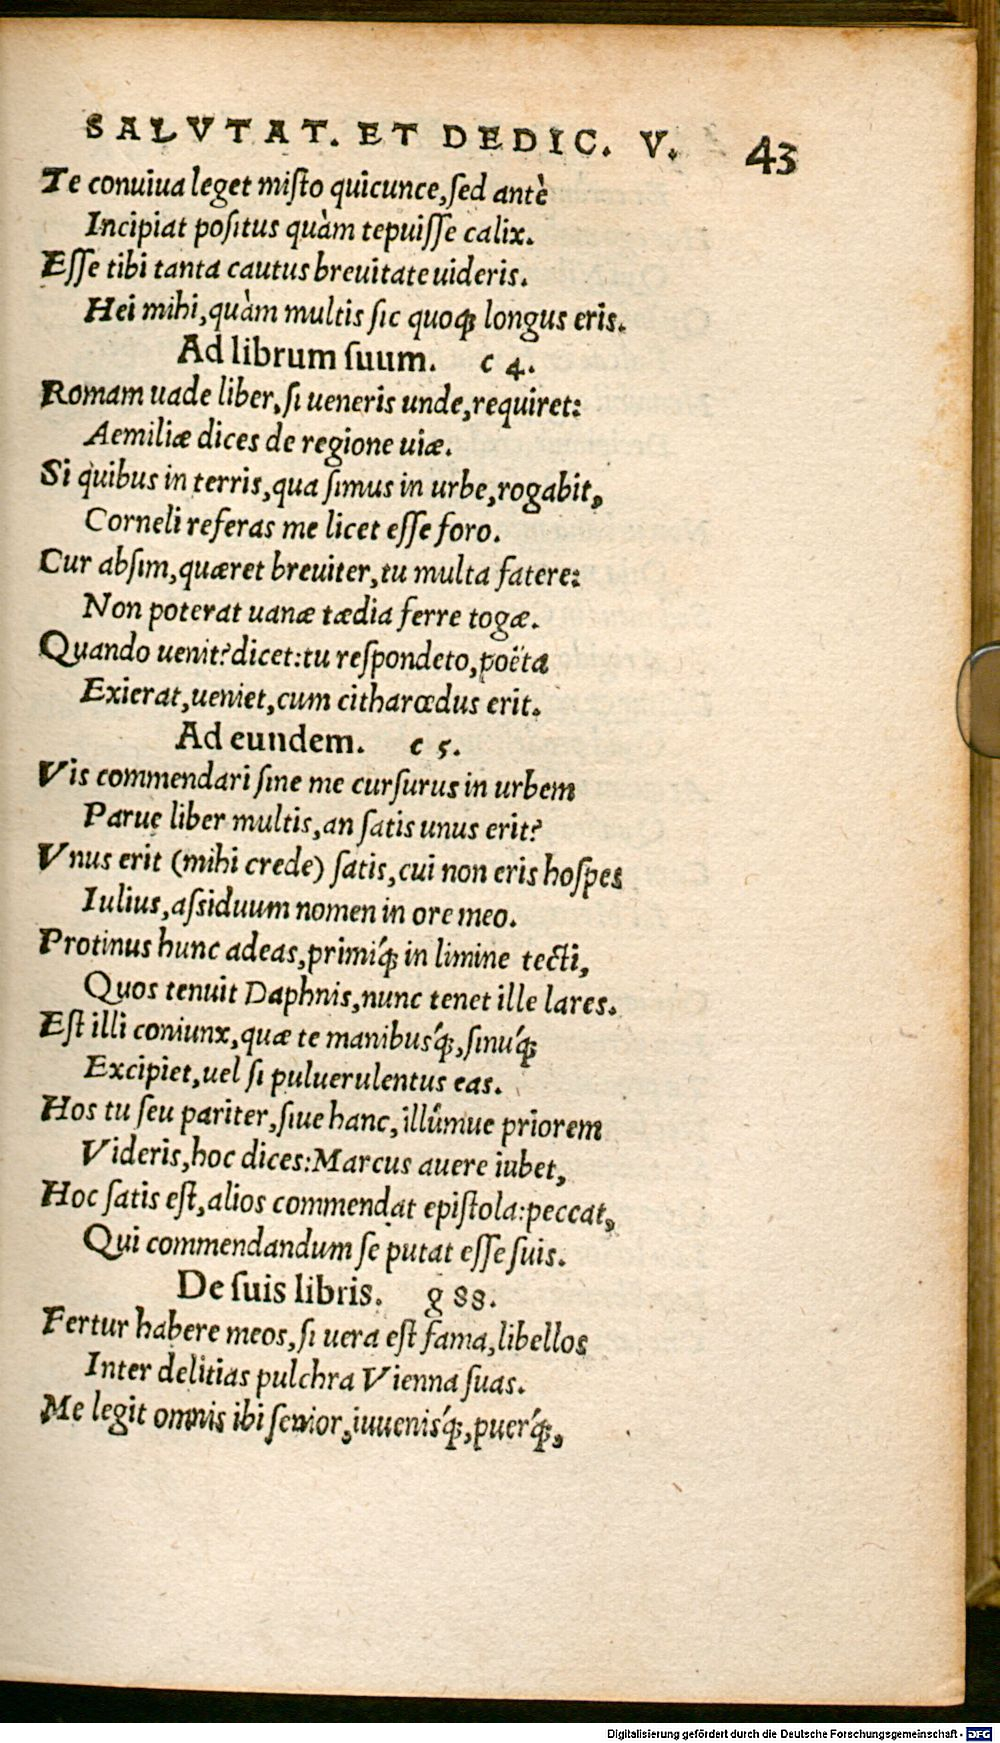 SALVTAT. ET DEDIC. V. 43
Te conuiua leget miſto quicunce, ſed antè
Incipiat poſitus quàm tepuiſſe calix.
Eſſe tibi tanta cautus breuitate uideris.
Hei mihi, quàm multis ſic quoqꝫ longus eris.
Ad librum ſuum. c 4.
Romam uade liber, ſi ueneris unde, requiret:
Aemiliæ dices de regione uiæ.
Si quibus in terris, qua ſimus in urbe, rogabit,
Corneli referas me licet eſſe foro.
Cur abſim, quæret breuiter, tu multa fatere:
Non poterat uanæ tædia ferre togæ.
Quando uenit? dicet: tu reſpondeto, poëta
Exierat, ueniet, cum citharœdus erit.
Ad eundem. c 5.
Vis commendari ſine me curſurus in urbem
Parue liber multis, an ſatis unus erit?
Vnus erit (mihi crede) ſatis, cui non eris hoſpes
Iulius, aſsiduum nomen in ore meo.
Protinus hunc adeas, primíqꝫ in limine tecti,
Quos tenuit Daphnis, nunc tenet ille lares.
Eſt illi coniunx, quæ te manibuśqꝫ, ſinúqꝫ
Excipiet, uel ſi puluerulentus eas.
Hos tu ſeu pariter, ſiue hanc, illûmue priorem
Videris, hoc dices: Marcus auere iubet,
Hoc ſatis eſt, alios commendat epiſtola: peccat,
Qui commendandum ſe putat eſſe ſuis.
De ſuis libris. g 88.
Fertur habere meos, ſi uera eſt fama, libellos
Inter delitias pulchra Vienna ſuas.
Me legit omnis ibi ſenior, iuueniśqꝫ, pueŕqꝫ,
Digitalisierung gefördert durch die Deutsche Forschungsgemeinschaft - DFG